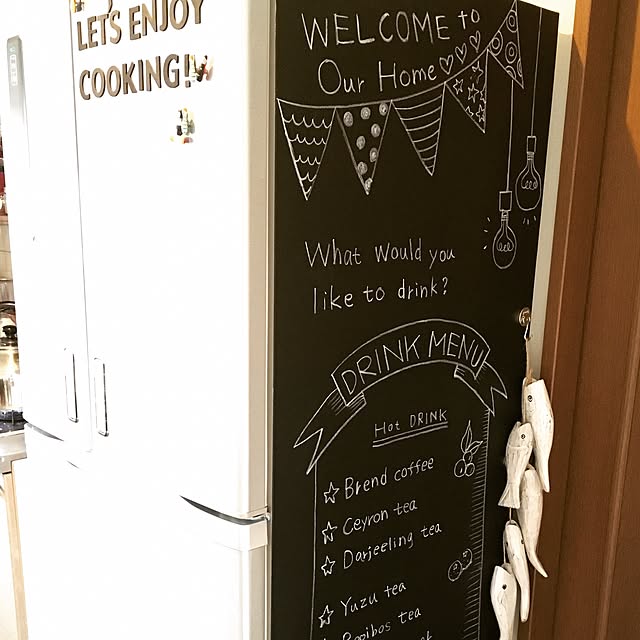 LET'S ENJOY
COOKING!
WELCOME to
Our Home
What would you
like to drink?
DRINK MENU
Hot DRINK
Brend coffee
Ceyron tea
Darjeeling tea
Yuzu tea
Rooibos tea